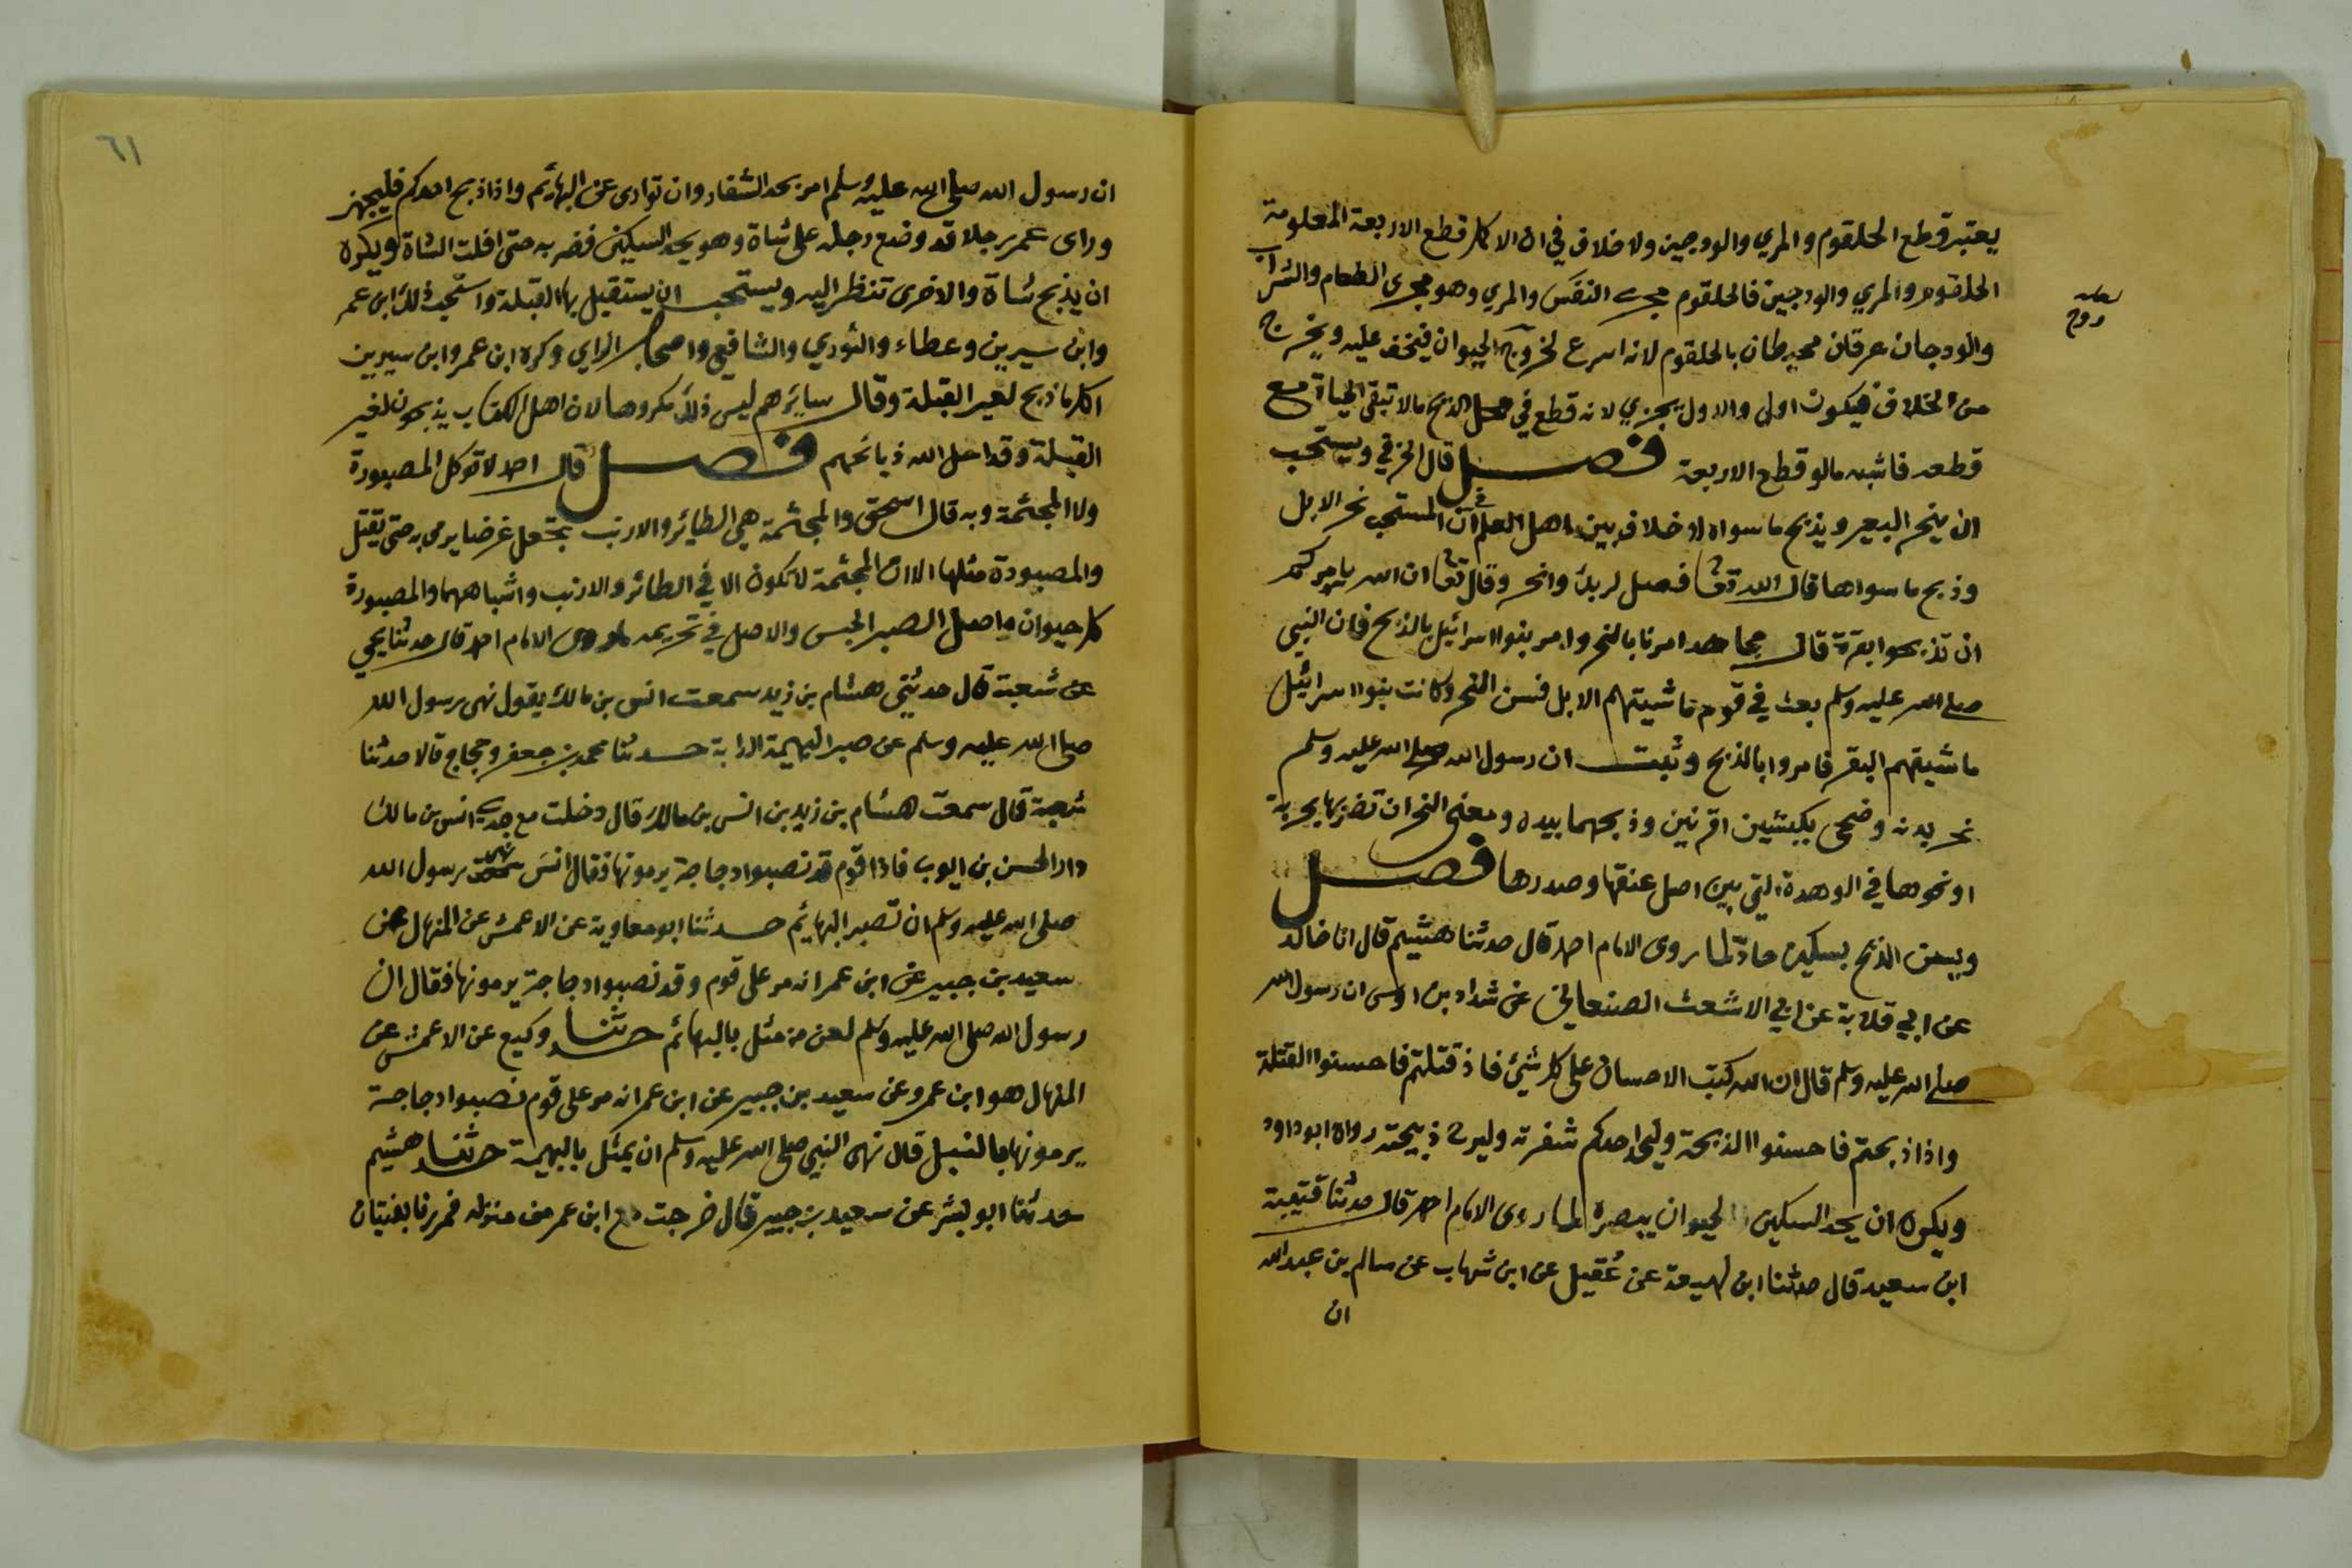 يعتبر قطع الحلقوم والمري والودجين ولا خلاف في ان الاكمل قطع الاربعة المعلومة
الحلقوم والمري والودجين فالحلقوم مجرى النفَس والمري وهو مجرى الطعام والشراب
والودجان عرقان محيطان بالحلقوم لانه اسرع لخروج الحيوان فيخف عليه ويخرج
لعله
روح
من الخلاف فيكون اولى والاول يجزي لانه قطع في محل الذبح مالا تبقى الحياة مع
قطعه فاشبه مالو قطع الاربعة فصل قال الخرقي ويستحب
ان ينحر البعير ويذبح ما سواه لا خلاف بين اهل العلم في ان المستحب نحر الابل
وذبح ما سواها قال الله تعا فصل لربك وانحر وقال تعا ان الله يامركم
ان تذبحوا بقرة قال مجاهد امرنا بالنحر وامر بنوا اسرائيل بالذبح فان النبي
صلى الله عليه وسلم بعث في قوم ماشيتهم الابل فسن النحر وكانت بنوا اسرائيل
ماشيتهم البقر فامروا بالذبح وثبت ان رسول الله صلى الله عليه وسلم
نحر بدنه وضحى بكبشين اقرنين وذبحهما بيده ومعنى النحر ان تضربها بحربة
او نحوها في الوهدة التي بين اصل عنقها وصدرها فصل
ويسن الذبح بسكين حادّ لما روى الامام احمد قال حدثنا هشيم قال انا خالد
عن ابي قلابة عن ابي الاشعث الصنعاني عن شداد بن اوس ان رسول الله
صلى الله عليه وسلم قال ان الله كتب الاحسان على كل شئ فاذ قتلتم فاحسنوا القتلة
واذا ذبحتم فاحسنوا الذبحة وليحد احدكم شفرته وليرح ذبيحته رواه ابو داود
ويكره ان يحد السكين الحيوان يبصره لما روى الامام احمد قال حدثنا قتيبة
ابن سعيد قال حدثنا ابن لهيعة عن عُقيل عن ابن شهاب عن سالم بن عبد الله
ان
٦١
ان رسول الله صلى الله عليه وسلم امر بحد الشفار وان توارى عن البهائم واذا ذبح احدكم فليجهز
وراى عمر رجلا قد وضع رجله على شاة وهو يحد السكين فضربه حتى افلت الشاة ويكره
ان يذبح شاة والاخرى تنظر اليه ويستحب ان يستقبل بها القبلة واستحب ذلك ابن عمر
وابن سيرين وعطاء والثوري والشافعي واصحاب الراي وكره ابن عمر وابن سيرين
اكل ما ذبح لغير القبلة وقال سايرهم ليس ذلك مكروها لان اهل الكتاب يذبحون لغير
القبلة وقد احل الله ذبائحهم فصل قال احمد لا توكل المصبورة
ولا المجثمة وبه قال اسحق والمجثمة هي الطائر والارنب يجعل غرضا يرمى به حتى يقتل
والمصبورة مثلها الا ان المجثمة لا تكون الا في الطائر والارنب واشباههما والمصبورة
كل حيوان واصل الصبر الحبس والاصل في تحريمه ما روى الامام احمد قال حدثنا يحي
عن شعبة قال حدثني هشام بن زيد سمعت انس بن مالك يقول نهى رسول الله
صلى الله عليه وسلم عن صبر البهيمة الدابة حدثنا محمد بن جعفر وحجاج قالا حدثنا
شعبة قال سمعت هشام بن زيد بن انس بن مالك قال دخلت مع جدي انس بن مالك
دار الحسن بن ايوب فاذا قوم قد نصبوا دجاجة يرمونها فقال انسَ نهى رسول الله
صلى الله عليه وسلم ان تصبر البهائم حدثنا ابو معاوية عن الاعمش عن المنهال عن
سعيد بن جبير عن ابن عمر انه مر على قوم وقد نصبوا دجاجة يرمونها فقال ان
رسول الله صلى الله عليه وسلم لعن من مثل بالبهائم حدثنا وكيع عن الاعمش عن
المنهال هو ابن عمرو عن سعيد بن جبير عن ابن عمر انه مر على قوم نصبوا دجاجة
يرمونها بالنبل قال نهى النبي صلى الله عليه وسلم ان يمثل بالبهيمة حدثنا هشيم
حدثنا ابو بشر عن سعيد بن جبير قال خرجت مع ابن عمر من منزله فمررنا بفتيان